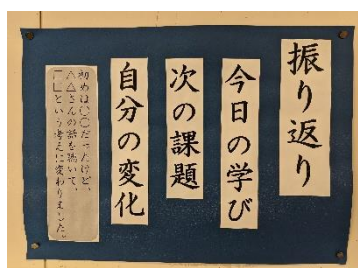 振り返り
今日の学び
次の課題
自分の変化
初めは〇〇だったけど、
△△さんの話を聴いて、
□□という考えに変わりました。